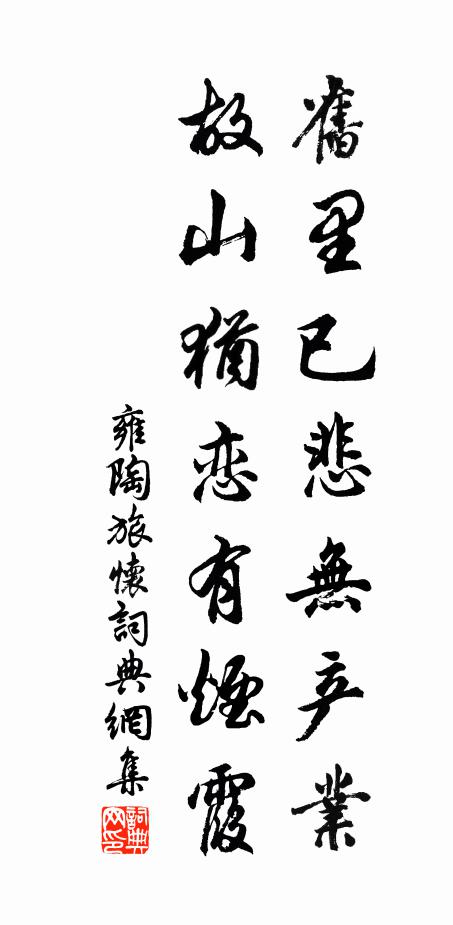 舊里已悲無产業
故山猶恋有煙霞
雍陶旅懷詞典網集
詞典网印